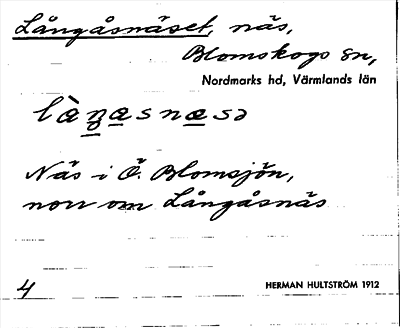 Långåsnäset, näs,
Blomskogs sn,
Nordmarks hd, Värmlands län
Näs i Ö. Blomsjön,
norr om Långåsnäs
4 HERMAN HULTSTRÖM 1912